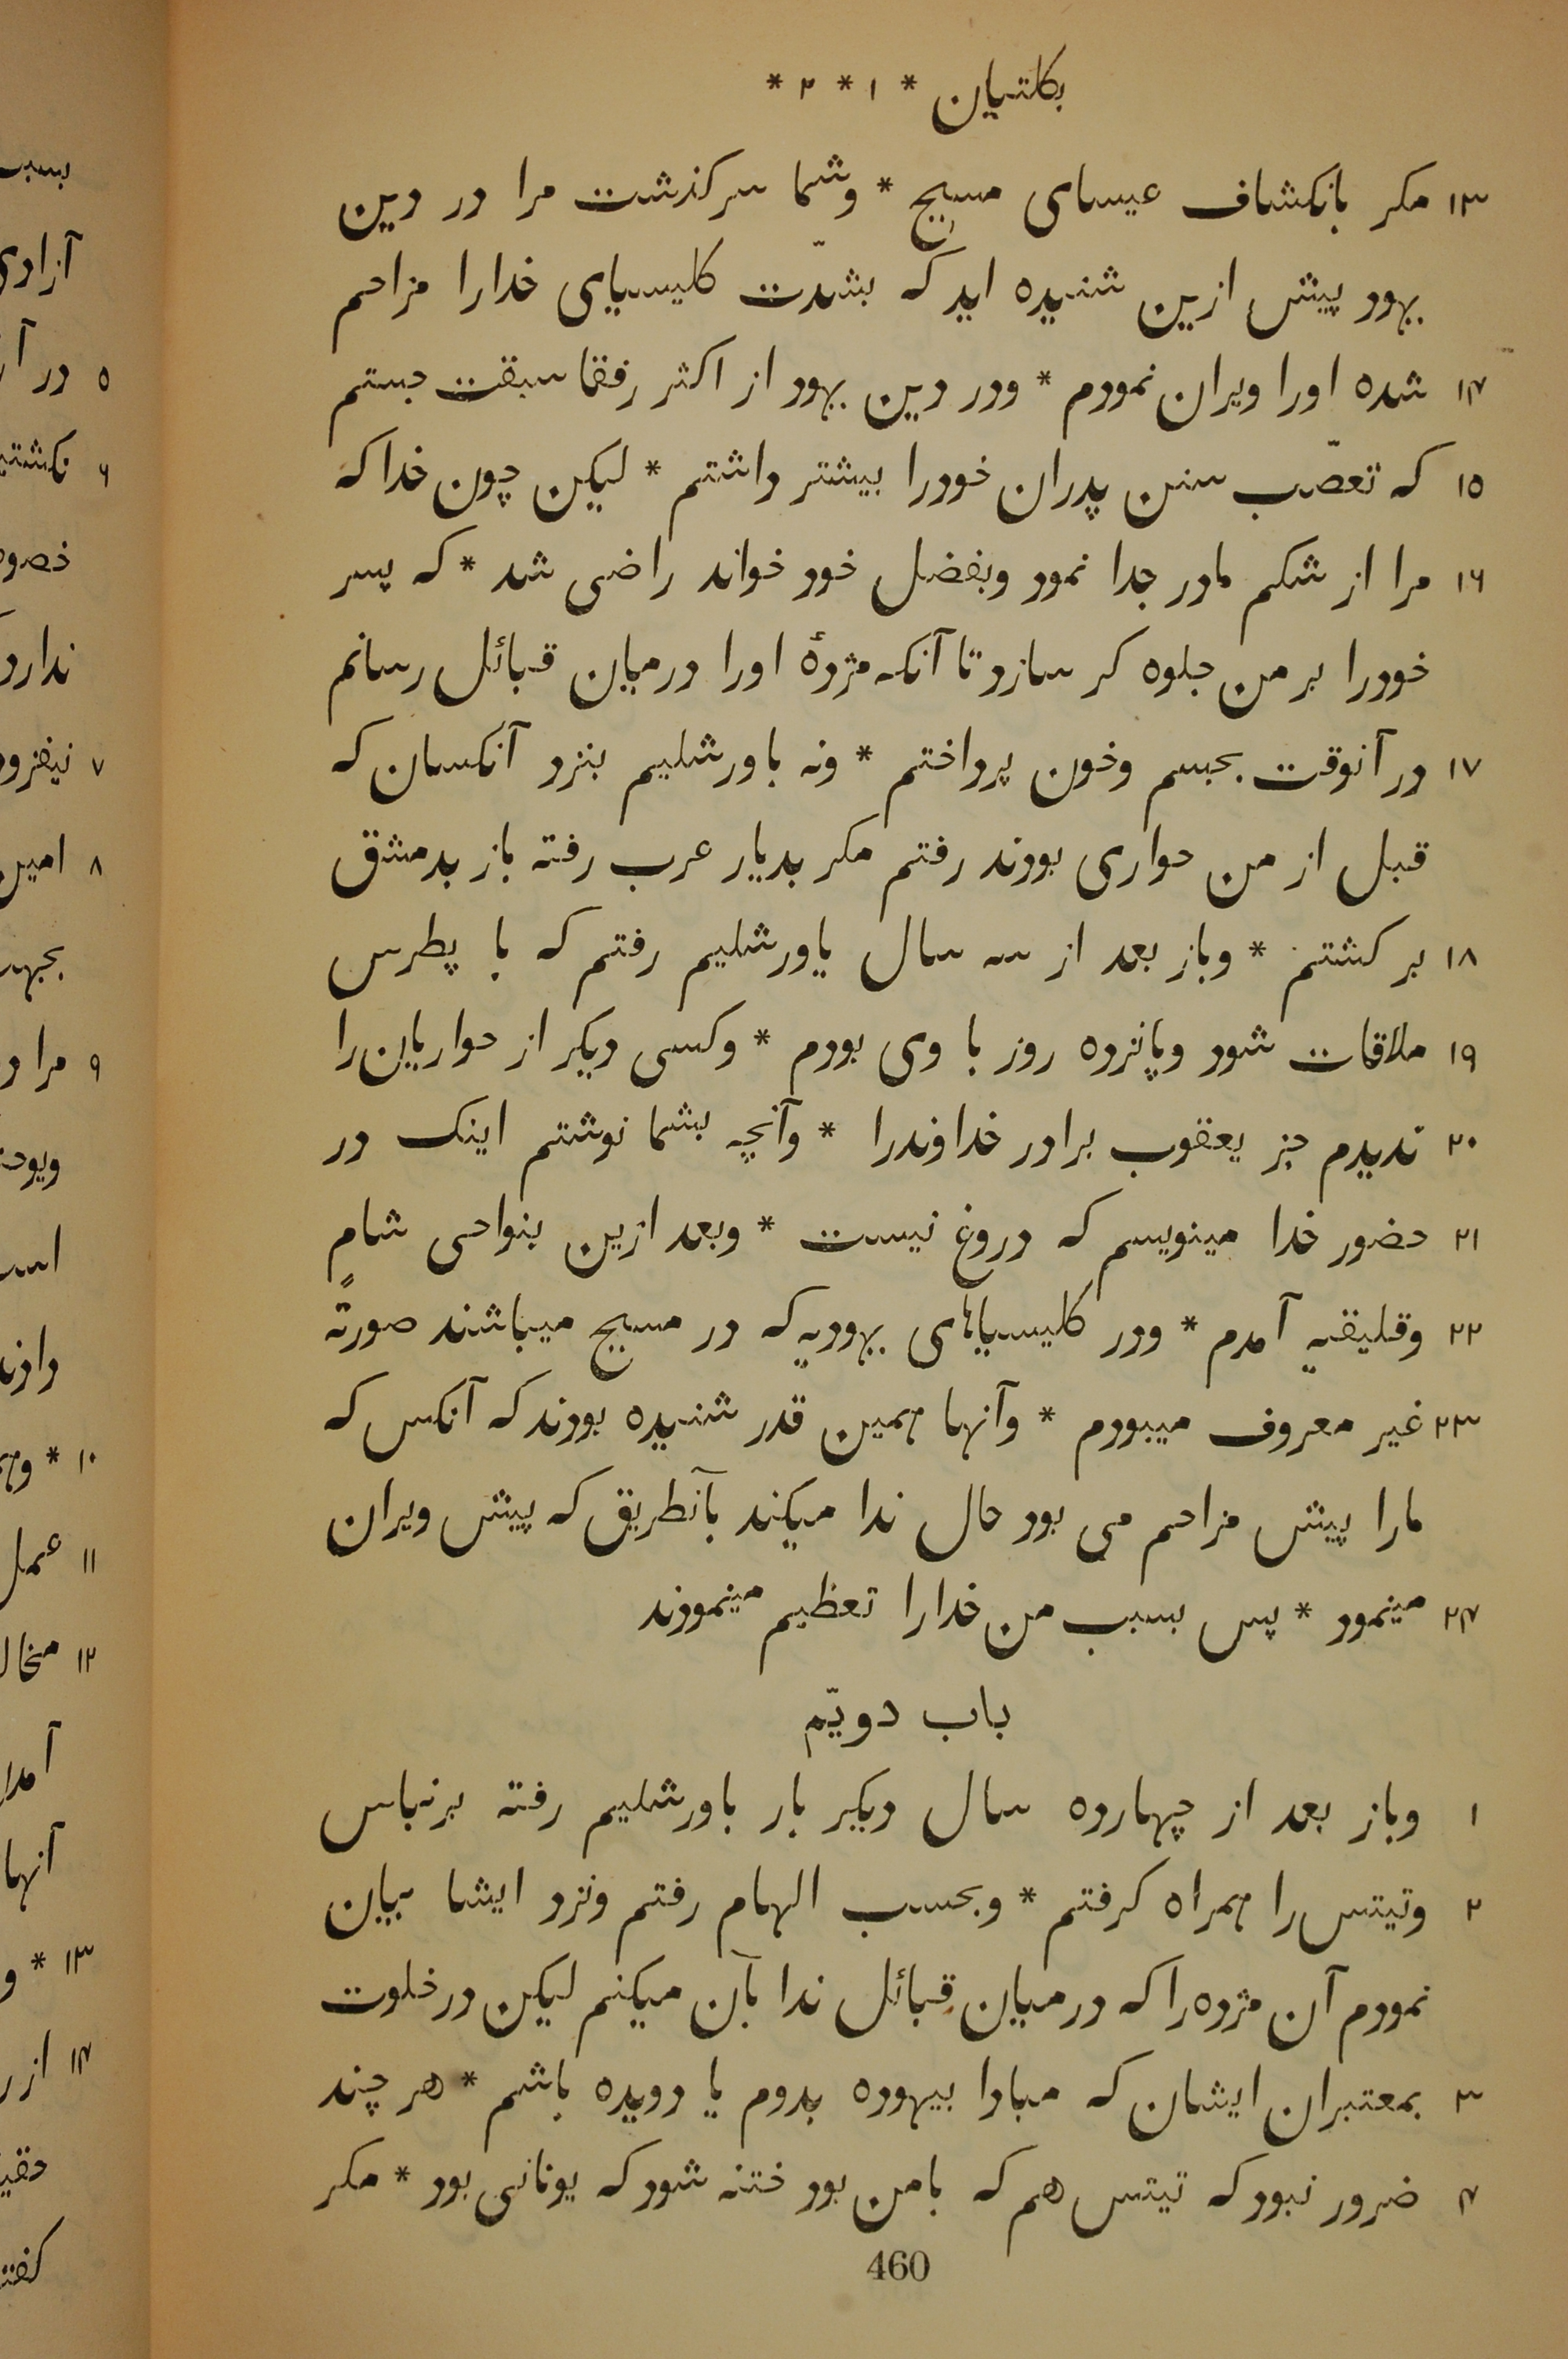 بکلتیان * ۱ * ۲ *
۱۳ مکر بانکشاف عیسای مسیح * وشما سرکذشت مرا در دین
یهود پیش ازین شنیده اید که بشدّت کلیسیای خدارا مزاحم
۱۴ شده اورا ویران نمودم * ودر دین یهود از اکثر رفقا سبقت جستم
۱۵ که تعصّب سنن پدران خودرا بیشتر داشتم * لیکن چون خدا که
۱۶ مرا از شکم مادر جدا نمود وبفضل خود خواند راضی شد * که پسر
خودرا بر من جلوه کر سازد تا آنکه مژدهٔ اورا درمیان قبائل رسانم
۱۷ در آنوقت بجسم وخون پرداختم * ونه باورشلیم بنزد آنکسان که
قبل از من حواری بودند رفتم مکر بدیار عرب رفته باز بدمشق
۱۸ بر کشتم * وباز بعد از سه سال یاورشلیم رفتم که با پطرس
۱۹ ملاقات شود وپانزده روز با وی بودم * وکسی دیکر از حواریان را
۲۰ ندیدم جز یعقوب برادر خداوندرا * وآنچه بشما نوشتم اینک در
۲۱ حضور خدا مینویسم که دروغ نیست * وبعد ازین بنواحی شام
۲۲ وقلیقیه آمدم * ودر کلیسیاهای یهودیه که در مسیح میباشند صورتةً
۲۳ غیر معروف میبودم * وآنها همین قدر شنیده بودند که آنکس که
مارا پیش مزاحم می بود حال ندا میکند بآنطریق که پیش ویران
۲۴ مینمود * پس بسبب من خدارا تعظیم مینمودند
باب دویّم
۱ وباز بعد از چهارده سال دیکر بار باورشلیم رفته برنباس
۲ وتیتس را همراه کرفتم * وبحسب الهام رفتم ونزد ایشا بیان
نمودم آن مژده را که درمیان قبائل ندا بآن میکنم لیکن در خلوت
۳ بمعتبران ایشان که مبادا بیهوده بدوم یا دویده باشم * هر چند
۴ ضرور نبود که تیتس هم که بامن بود ختنه شود که یونانی بود * مکر
460